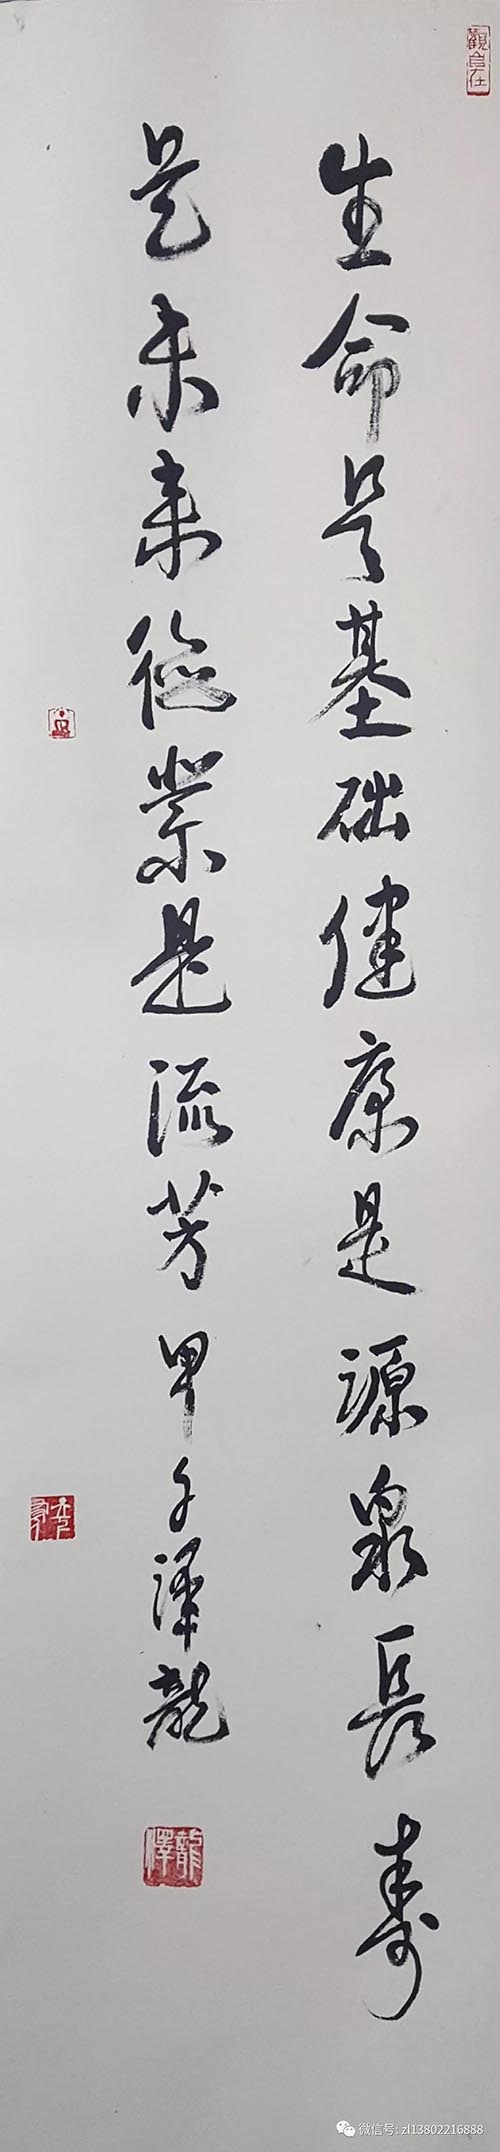 觀自在
生命是基础健康是源泉長寿
是未来德業是流芳甲午泽龍
龍澤
微信号: zl13802216888